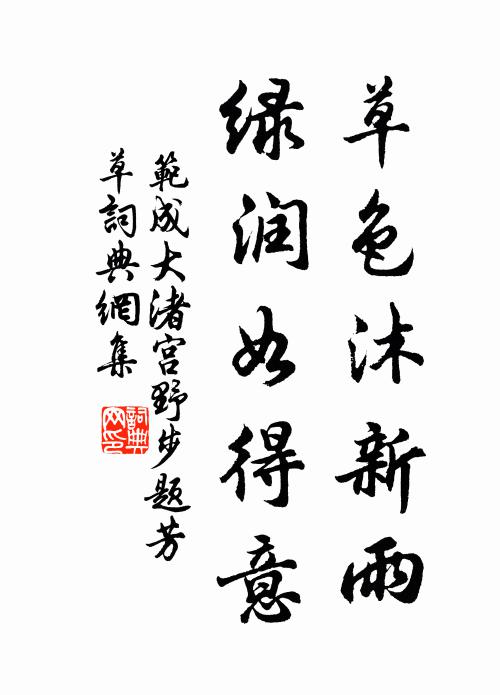 草色沐新雨
绿润如得意
範成大渚宫野步题芳
草詞典網集
詞典网印